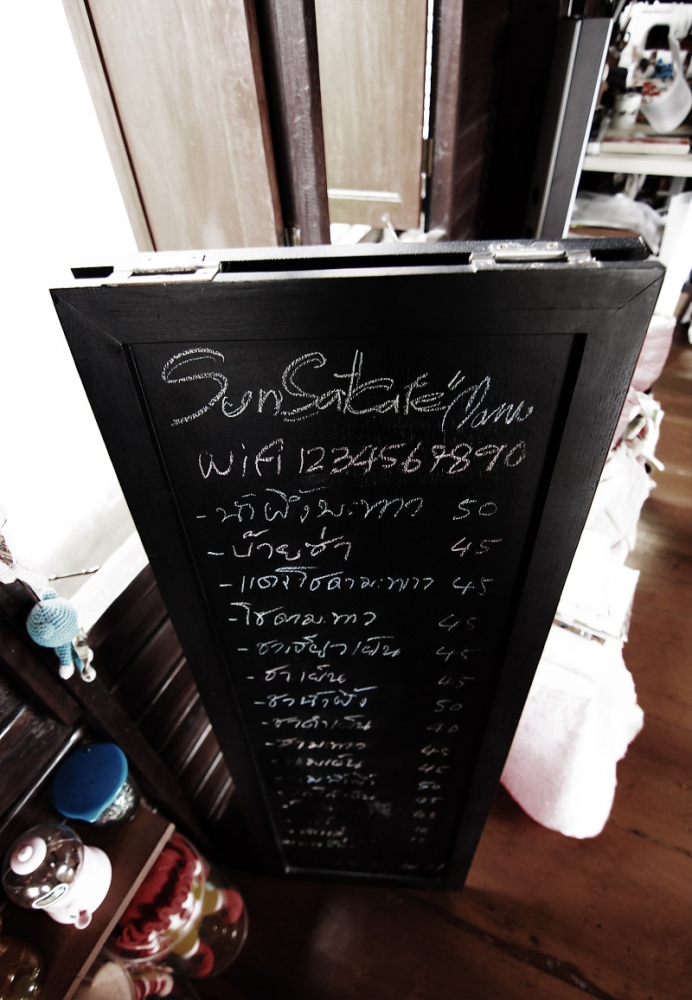 SunSatCafe" Menu
WiFi 1234567890
- น้ำผึ้งมะนาว 50
- บ๊วยซ่า 45
- แดงโซดามะนาว 45
- โซดามะนาว 45
- ชาเขียวเย็น 45
- ชาเย็น 45
- ชาน้ำผึ้ง 50
- ชาดำเย็น 40
- ชามะนาว 45
นมเย็น 45
50
45